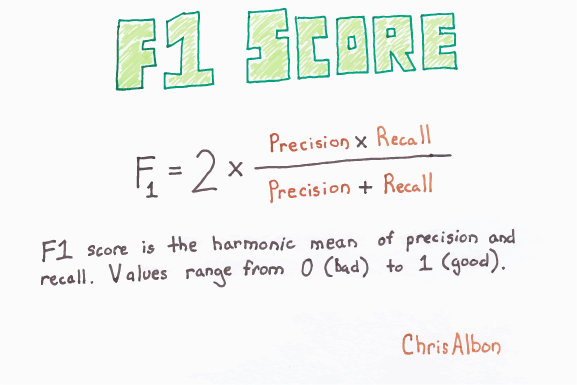 F1 SCORE
F₁ = 2 × (Precision x Recall) / (Precision + Recall)
F1 score is the harmonic mean of precision and
recall. Values range from 0 (bad) to 1 (good).
Chris Albon